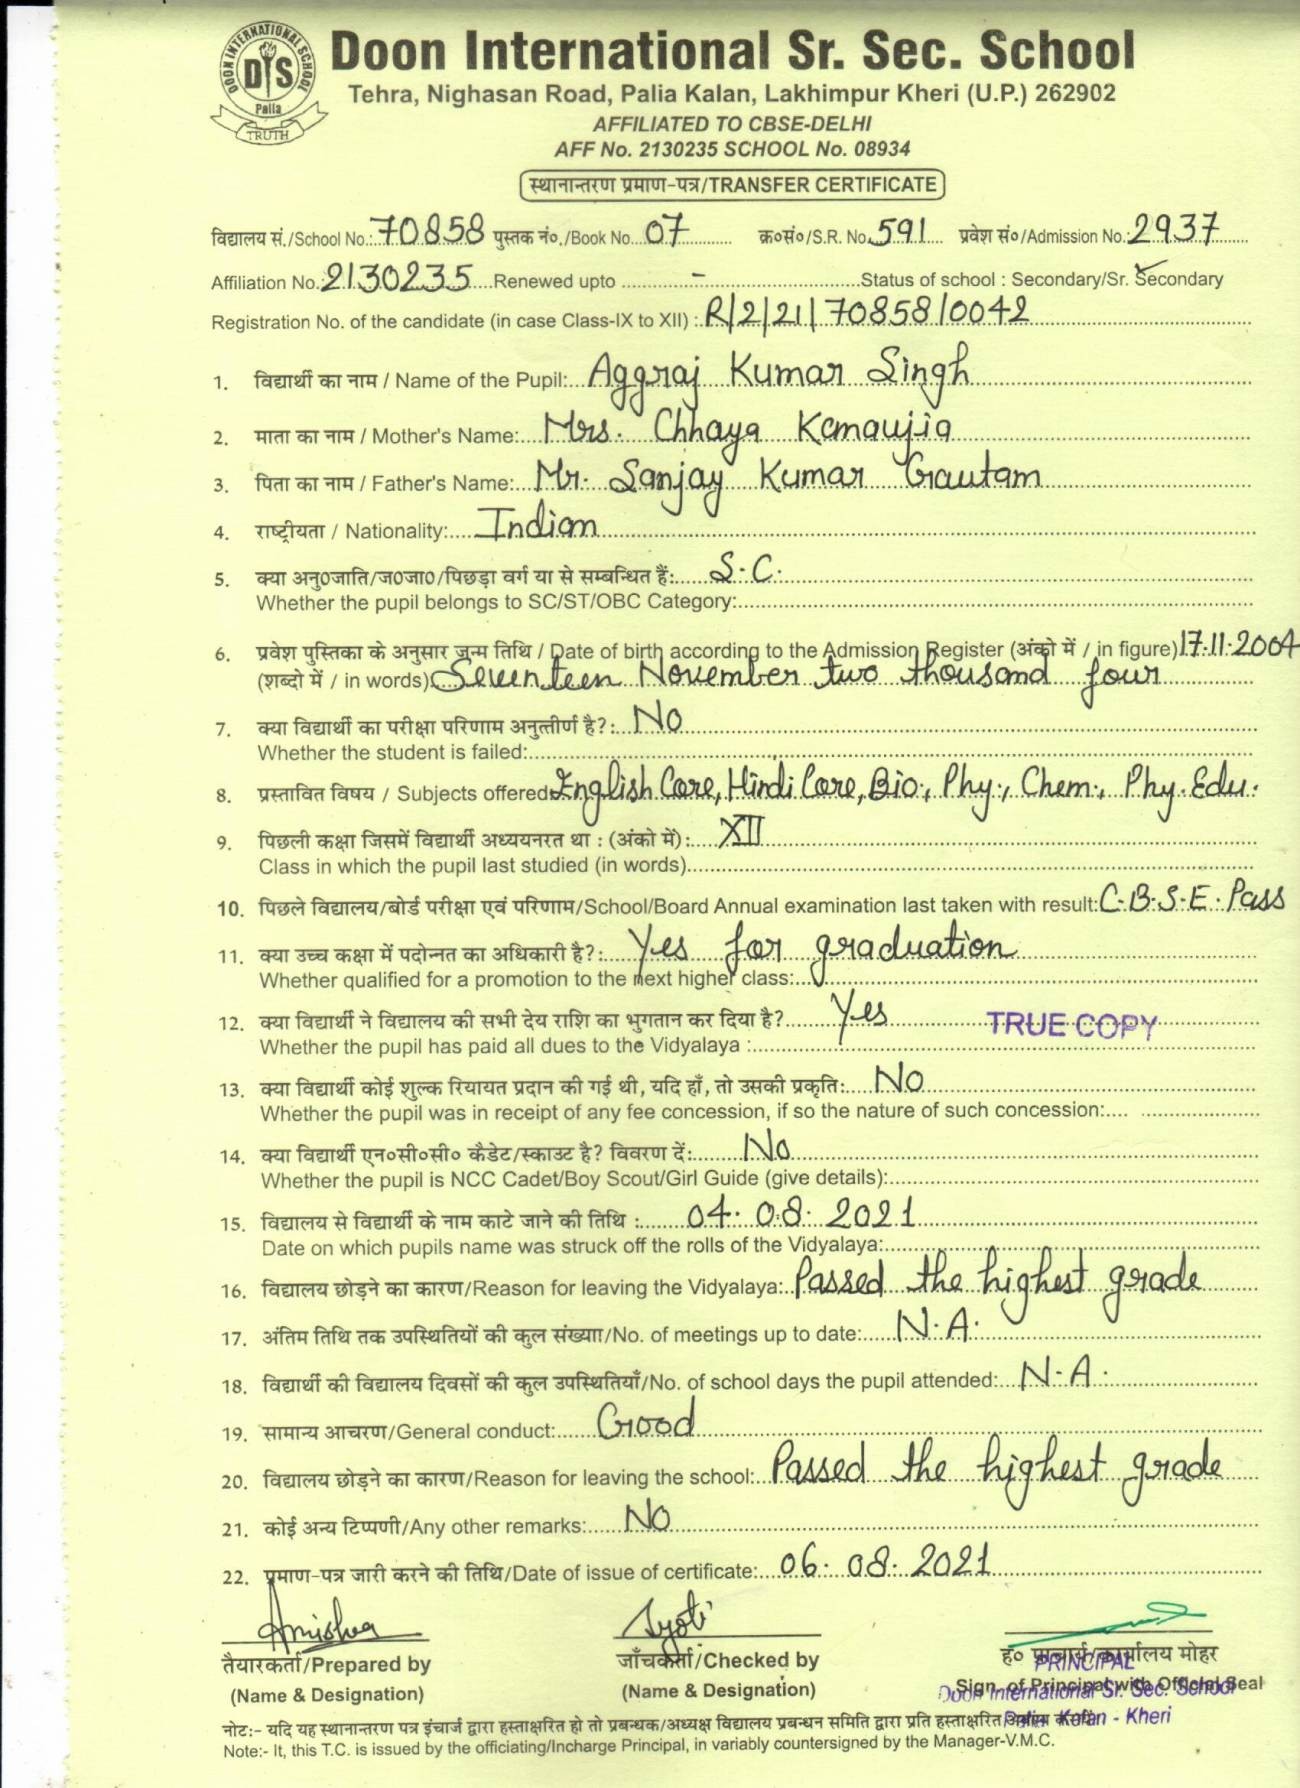 DOON INTERNATIONAL SCHOOL
DIS
Palia
TRUTH
Doon International Sr. Sec. School
Tehra, Nighasan Road, Palia Kalan, Lakhimpur Kheri (U.P.) 262902
AFFILIATED TO CBSE-DELHI
AFF No. 2130235 SCHOOL No. 08934
स्थानान्तरण प्रमाण-पत्र/TRANSFER CERTIFICATE
विद्यालय सं./School No.: 70858 पुस्तक नं०./Book No. 07 क्र०सं०/S.R. No. 591 प्रवेश सं०/Admission No.: 2937
Affiliation No.: 2130235 Renewed upto - Status of school : Secondary/Sr. Secondary
Registration No. of the candidate (in case Class-IX to XII) : R/2/21/70858/0042
1. विद्यार्थी का नाम / Name of the Pupil: Aggraj Kumar Singh
2. माता का नाम / Mother's Name: Mrs. Chhaya Kamaujia
3. पिता का नाम / Father's Name: Mr. Sanjay Kumar Gautam
4. राष्ट्रीयता / Nationality: Indian
5. क्या अनु0जाति/ज0जा0/पिछड़ा वर्ग या से सम्बन्धित हैं: S.C.
Whether the pupil belongs to SC/ST/OBC Category:
6. प्रवेश पुस्तिका के अनुसार जन्म तिथि / Date of birth according to the Admission Register (अंको में / in figure) 17.11.2004
(शब्दो में / in words) Seventeen November two thousand four
7. क्या विद्यार्थी का परीक्षा परिणाम अनुत्तीर्ण है?: No
Whether the student is failed:
8. प्रस्तावित विषय / Subjects offered: English Core, Hindi Core, Bio., Phy., Chem., Phy. Edu.
9. पिछली कक्षा जिसमें विद्यार्थी अध्ययनरत था : (अंको में): XII
Class in which the pupil last studied (in words)
10. पिछले विद्यालय/बोर्ड परीक्षा एवं परिणाम/School/Board Annual examination last taken with result: C.B.S.E. Pass
11. क्या उच्च कक्षा में पदोन्नत का अधिकारी है?: Yes for graduation
Whether qualified for a promotion to the next higher class:
12. क्या विद्यार्थी ने विद्यालय की सभी देय राशि का भुगतान कर दिया है? Yes TRUE COPY
Whether the pupil has paid all dues to the Vidyalaya :
13. क्या विद्यार्थी कोई शुल्क रियायत प्रदान की गई थी, यदि हाँ, तो उसकी प्रकृति: No
Whether the pupil was in receipt of any fee concession, if so the nature of such concession:
14. क्या विद्यार्थी एन०सी०सी० कैडेट/स्काउट है? विवरण दें: No
Whether the pupil is NCC Cadet/Boy Scout/Girl Guide (give details):
15. विद्यालय से विद्यार्थी के नाम काटे जाने की तिथि : 04.08.2021
Date on which pupils name was struck off the rolls of the Vidyalaya:
16. विद्यालय छोड़ने का कारण/Reason for leaving the Vidyalaya: Passed the highest grade
17. अंतिम तिथि तक उपस्थितियों की कुल संख्याा/No. of meetings up to date: N.A.
18. विद्यार्थी की विद्यालय दिवसों की कुल उपस्थितियाँ/No. of school days the pupil attended: N.A.
19. सामान्य आचरण/General conduct: Good
20. विद्यालय छोड़ने का कारण/Reason for leaving the school: Passed the highest grade
21. कोई अन्य टिप्पणी/Any other remarks: No
22. प्रमाण-पत्र जारी करने की तिथि/Date of issue of certificate: 06.08.2021
Amisha Jyoti
तैयारकर्ता/Prepared by जाँचकर्ता/Checked by ह० प्राचार्य/कार्यालय मोहर
PRINCIPAL
(Name & Designation) (Name & Designation) Sign. of Principal with Official Seal
Doon International Sr. Sec. School
Palia Kalan - Kheri
नोट:- यदि यह स्थानान्तरण पत्र इंचार्ज द्वारा हस्ताक्षरित हो तो प्रबन्धक/अध्यक्ष विद्यालय प्रबन्धन समिति द्वारा प्रति हस्ताक्षरित
Note:- It, this T.C. is issued by the officiating/Incharge Principal, in variably countersigned by the Manager-V.M.C.